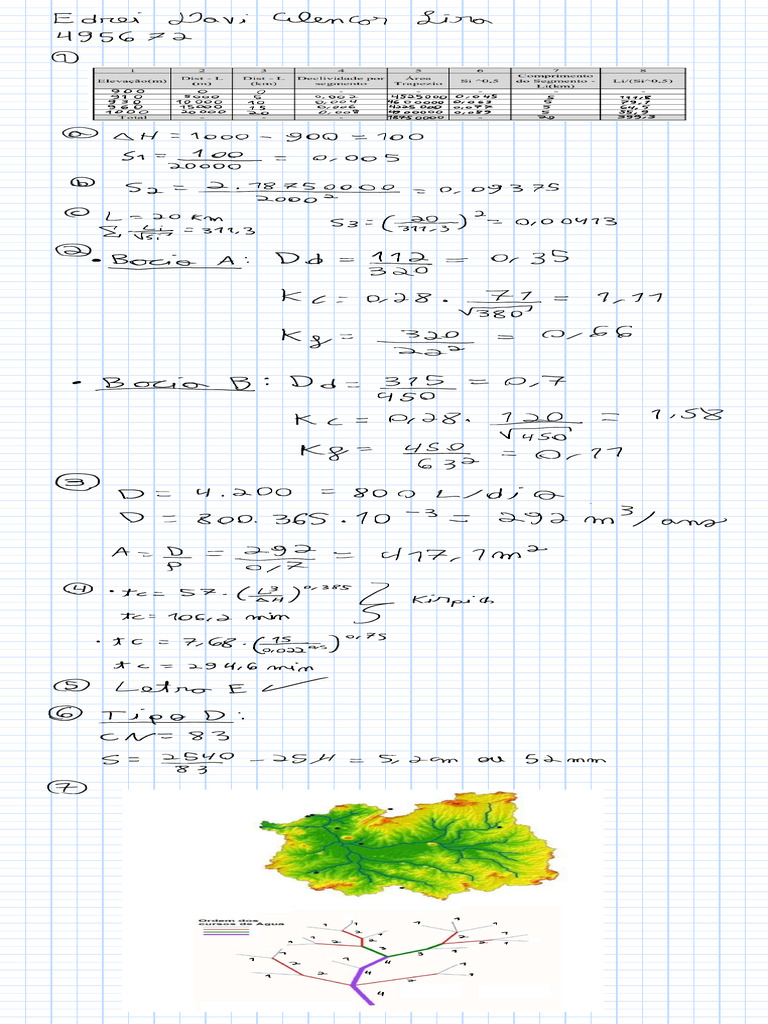 Edrei Davi Alencar Lira
495672
①
1 2 3 4 5 6 7 8
Elevação(m) Dist - L (m) Dist - L (km) Declividade por segmento Área Trapezio Si ^0.5 Comprimento do Segmento - Li(km) Li/(Si^0.5)
900 0 0 - - - - -
910 5000 5 0,002 4525000 0,045 5 111,8
930 10000 10 0,004 4600000 0,063 5 79,1
960 15000 15 0,006 4725000 0,077 5
1000 20000 20 0,008 0,089 5
Total - - - 18750000 - 20
ⓐ ΔH = 1000 - 900 = 100
S1 = 100/20000 = 0,005
ⓑ S2 = 2.18750000/2000² = 0,09375
ⓒ L = 20 km S3 = (20/311,3)² = 0,00413
Σ Li/√Si = 311,3
② • Bacia A: Dd = 112/320 = 0,35
Kc = 0,28 · 71/√380 = 1,11
Kf = 320/22² = 0,66
• Bacia B: Dd = 315/450 = 0,7
Kc = 0,28 · 120/√450 = 1,58
Kf = 450/63² = 0,11
③ D = 4.200 = 800 L/dia
D = 800.365.10⁻³ = 292 m³/ano
A = D/P = 292/0,7 = 417,1 m²
④ • tc = 57 · (L³/ΔH)^0,385 } Kirpich
tc = 106,2 min
• tc = 7,68 · (15/0,022^0,5)^0,75
tc = 294,6 min
⑤ Letra E
⑥ Tipo D:
CN = 83
S = 2540/83 - 25,4 = 5,2 cm ou 52 mm
⑦
Ordem dos
cursos de Água
1 1 1 1 1
1 2 2 2 1
1 1 2 3 3 2 1
1 2 1 4 1
1 2 4 2 1
4